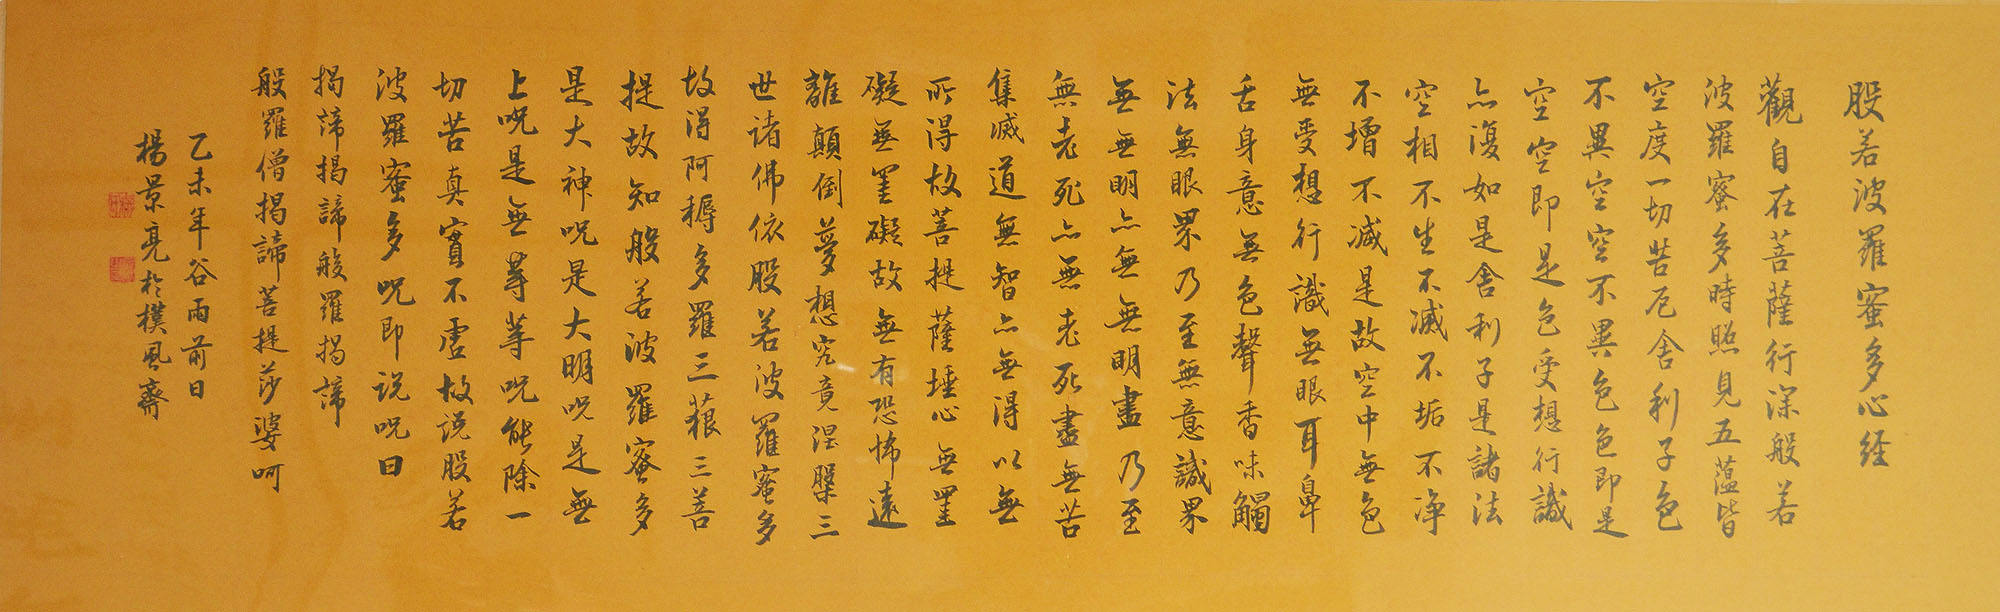 般若波羅蜜多心经
觀自在菩薩行深般若
波羅蜜多時照見五蕴皆
空度一切苦厄舍利子色
不異空空不異色色即是
空空即是色受想行識
亦復如是舍利子是諸法
空相不生不滅不垢不净
不增不减是故空中無色
無受想行識無眼耳鼻
舌身意無色聲香味觸
法無眼界乃至無意識界
無無明亦無無明盡乃至
無老死亦無老死盡無苦
集滅道無智亦無得以無
所得故菩提薩埵心無罣
礙無罣礙故無有恐怖遠
離顛倒夢想究竟涅槃三
世诸佛依般若波羅蜜多
故得阿耨多羅三藐三菩
提故知般若波羅蜜多
是大神呪是大明呪是無
上呪是無等等呪能除一
切苦真實不虛故说般若
波羅蜜多呪即说呪曰
揭諦揭諦般羅揭諦
般羅僧揭諦菩提莎婆呵
乙未年谷雨前日
楊景亮於樸風齋